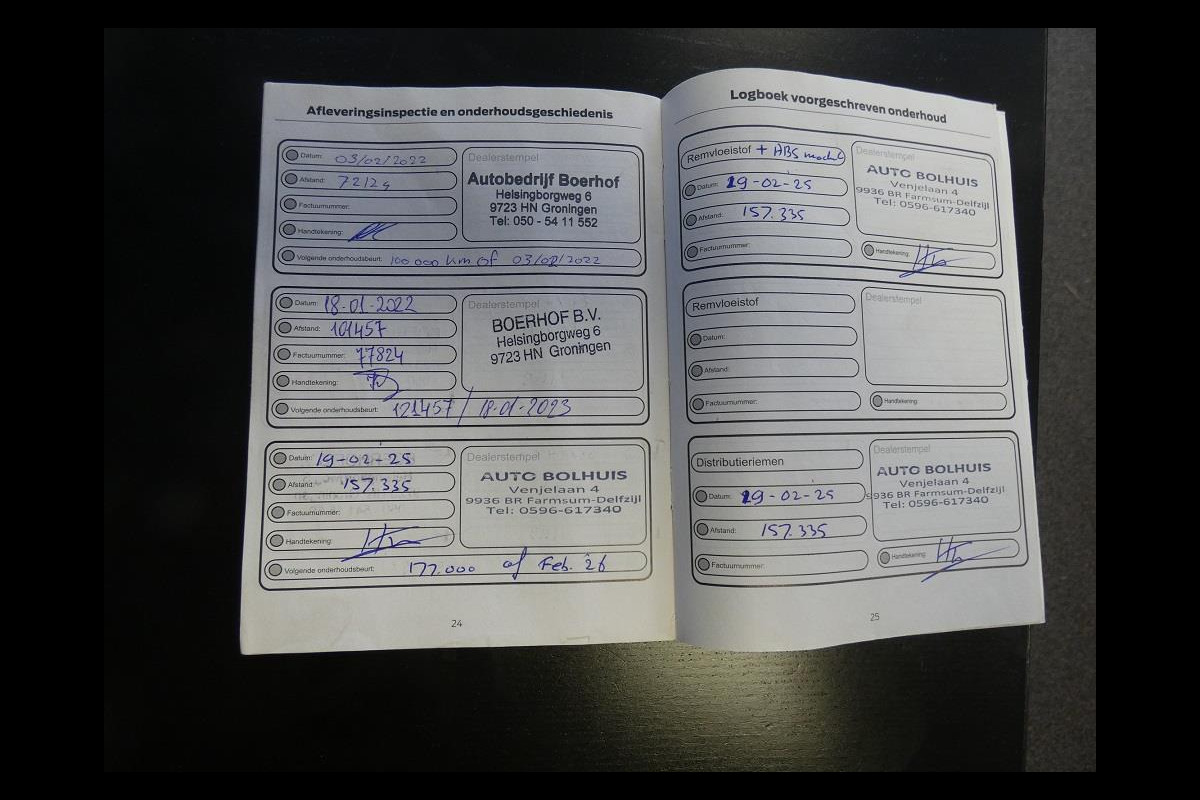 Afleveringsinspectie en onderhoudsgeschiedenis
Datum: 03/02/2022
Afstand: 72124
Factuurnummer:
Handtekening:
Dealerstempel
Autobedrijf Boerhof
Helsingborgweg 6
9723 HN Groningen
Tel: 050 - 54 11 552
Volgende onderhoudsbeurt: 100 000 km of 03/02/2022
Datum: 18-01-2022
Afstand: 101457
Factuurnummer: 77824
Handtekening:
Dealerstempel
BOERHOF B.V.
Helsingborgweg 6
9723 HN Groningen
Volgende onderhoudsbeurt: 121457 / 18-01-2023
Datum: 19-02-25
Afstand: 157.335
Factuurnummer:
Handtekening:
Dealerstempel
AUTO BOLHUIS
Venjelaan 4
9936 BR Farmsum-Delfzijl
Tel: 0596-617340
Volgende onderhoudsbeurt: 177.000 of Feb. 26
24
Logboek voorgeschreven onderhoud
Remvloeistof + ABS
Datum: 19-02-25
Afstand: 157.335
Factuurnummer:
Dealerstempel
AUTO BOLHUIS
Venjelaan 4
9936 BR Farmsum-Delfzijl
Tel: 0596-617340
Handtekening:
Remvloeistof
Datum:
Afstand:
Factuurnummer:
Dealerstempel
Handtekening:
Distributieriemen
Datum: 19-02-25
Afstand: 157.335
Factuurnummer:
Dealerstempel
AUTO BOLHUIS
Venjelaan 4
9936 BR Farmsum-Delfzijl
Tel: 0596-617340
Handtekening:
25